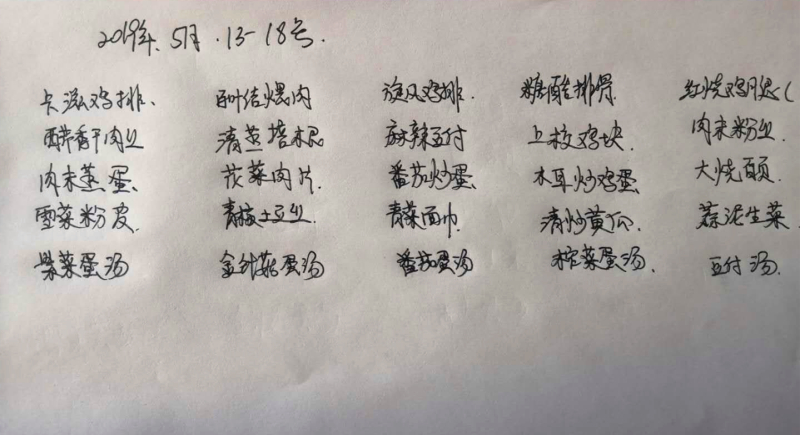 2019年.5月.13-18号.
卡滋鸡排、 百叶结煨肉 旋风鸡排. 糖醋排骨. 红烧鸡腿(
香干肉丝 清蒸 麻辣豆付 上校鸡块. 肉末粉丝.
肉末蒸蛋. 花菜肉片. 番茄炒蛋. 木耳炒鸡蛋. 大烧
雪菜粉皮. 青椒土豆丝. 青菜面巾. 清炒黄瓜. 蒜泥生菜.
紫菜蛋汤 金针菇蛋汤 番茄蛋汤. 榨菜蛋汤. 豆付汤.